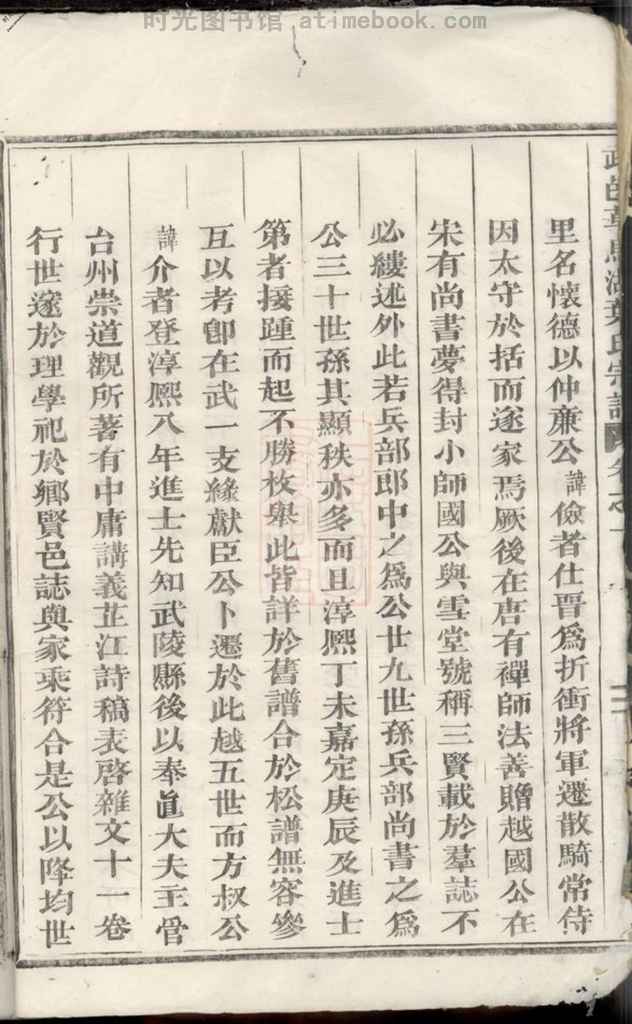 时光图书馆 atimebook.com
里名懷德以仲亷公諱儉者仕晋爲折衝將軍遷散騎常侍
因太守於括而遂家焉厥後在唐有禪師法善贈越國公在
宋有尚書夢得封小師國公與雪堂號稱三賢載於羣誌不
必縷述外此若兵部郎中之爲公廿九世孫兵部尚書之爲
公三十世孫其顯秩亦多而且淳熈丁未嘉定庚辰及進士
第者接踵而起不勝枚舉此皆詳於舊譜合於松譜無容叅
互以考卽在武一支緣獻臣公卜遷於此越五世而方叔公
諱介者登淳熈八年進士先知武陵縣後以奉直大夫主管
台州崇道觀所著有中庸講義芷江詩稿表啓雜文十一卷
行世邃於理學祀於鄉賢邑誌與家乘符合是公以降均世